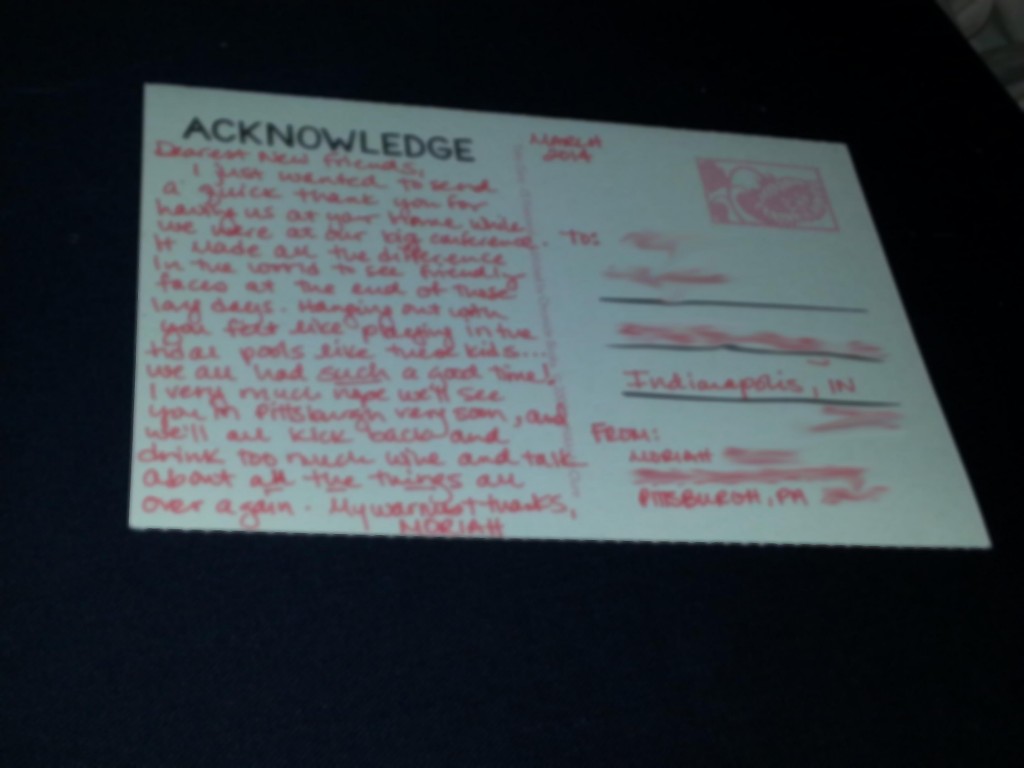 ACKNOWLEDGE
Dearest New Friends,
I just wanted to send
a quick thank you for
having us at your home while
we were at our big conference.
It made all the difference
in the world to see friendly
faces at the end of those
long days. Hanging out with
you felt like playing in the
tidal pools like these kids...
we all had such a good time!
I very much hope we'll see
you in Pittsburgh very soon, and
we'll all kick back and
drink too much wine and talk
about all the things all
over again. My warmest thanks,
MORIAH
MARCH
2014
TO:
Indianapolis, IN
FROM:
MORIAH
PITTSBURGH, PA